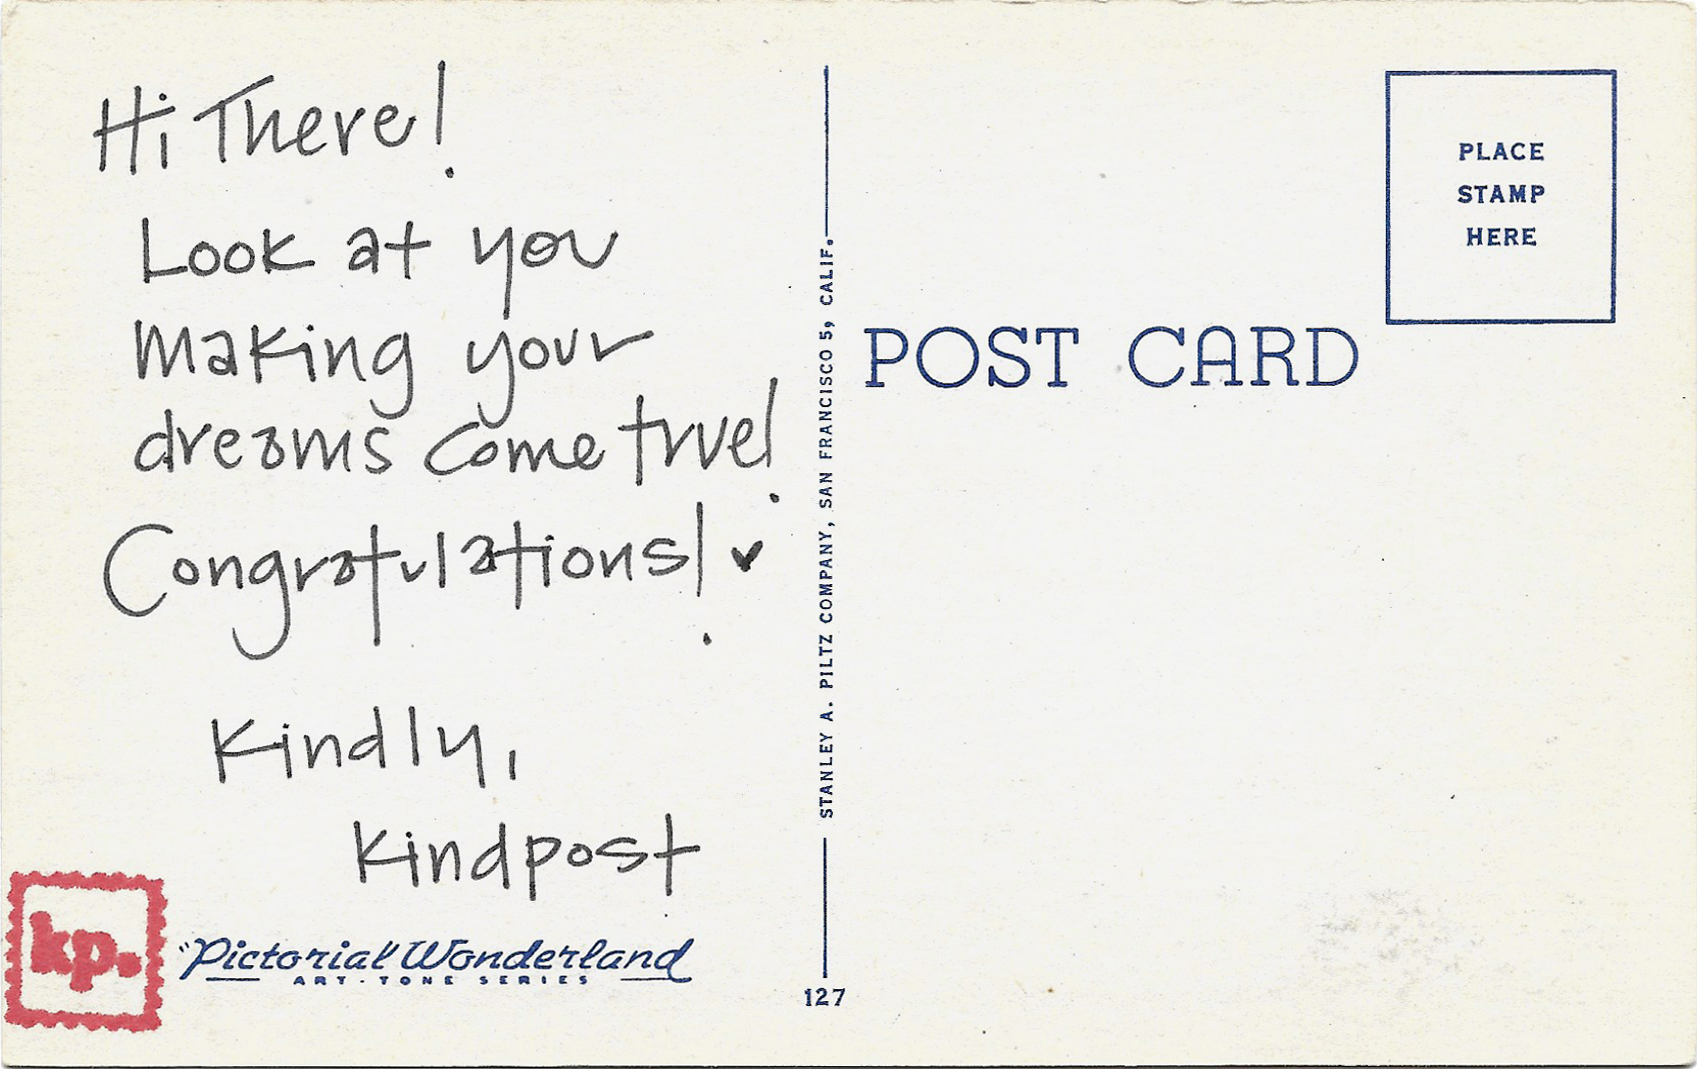 Hi There!
Look at you
making your
dreams come true!
Congratulations! ♥
Kindly,
Kindpost
kp.
"Pictorial Wonderland
ART-TONE SERIES
STANLEY A. PILTZ COMPANY, SAN FRANCISCO 5, CALIF.
127
POST CARD
PLACE
STAMP
HERE